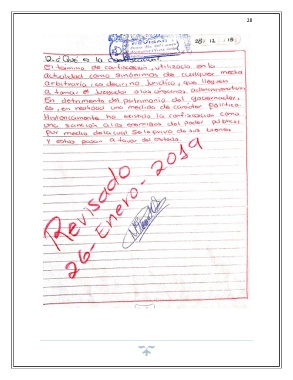 28
28/12/18
Q.¿Qué es la confiscación?
El termino de confiscación, utilizado en la
actualidad como sinónimos de cualquier medida
arbitraria, es decir, no jurídica, que lleguen
a tomar el juzgador a los órganos administrativos
En detrimento del patrimonio del gobernador,
es, en realidad una medida de carácter político.
Historicamente ha existido la confiscación como
una sanción a los enemigos del poder público
Por medio de la cual se le priva de sus bienes
y estos pasan a favor del estado.
Revisado
26-Enero-2019